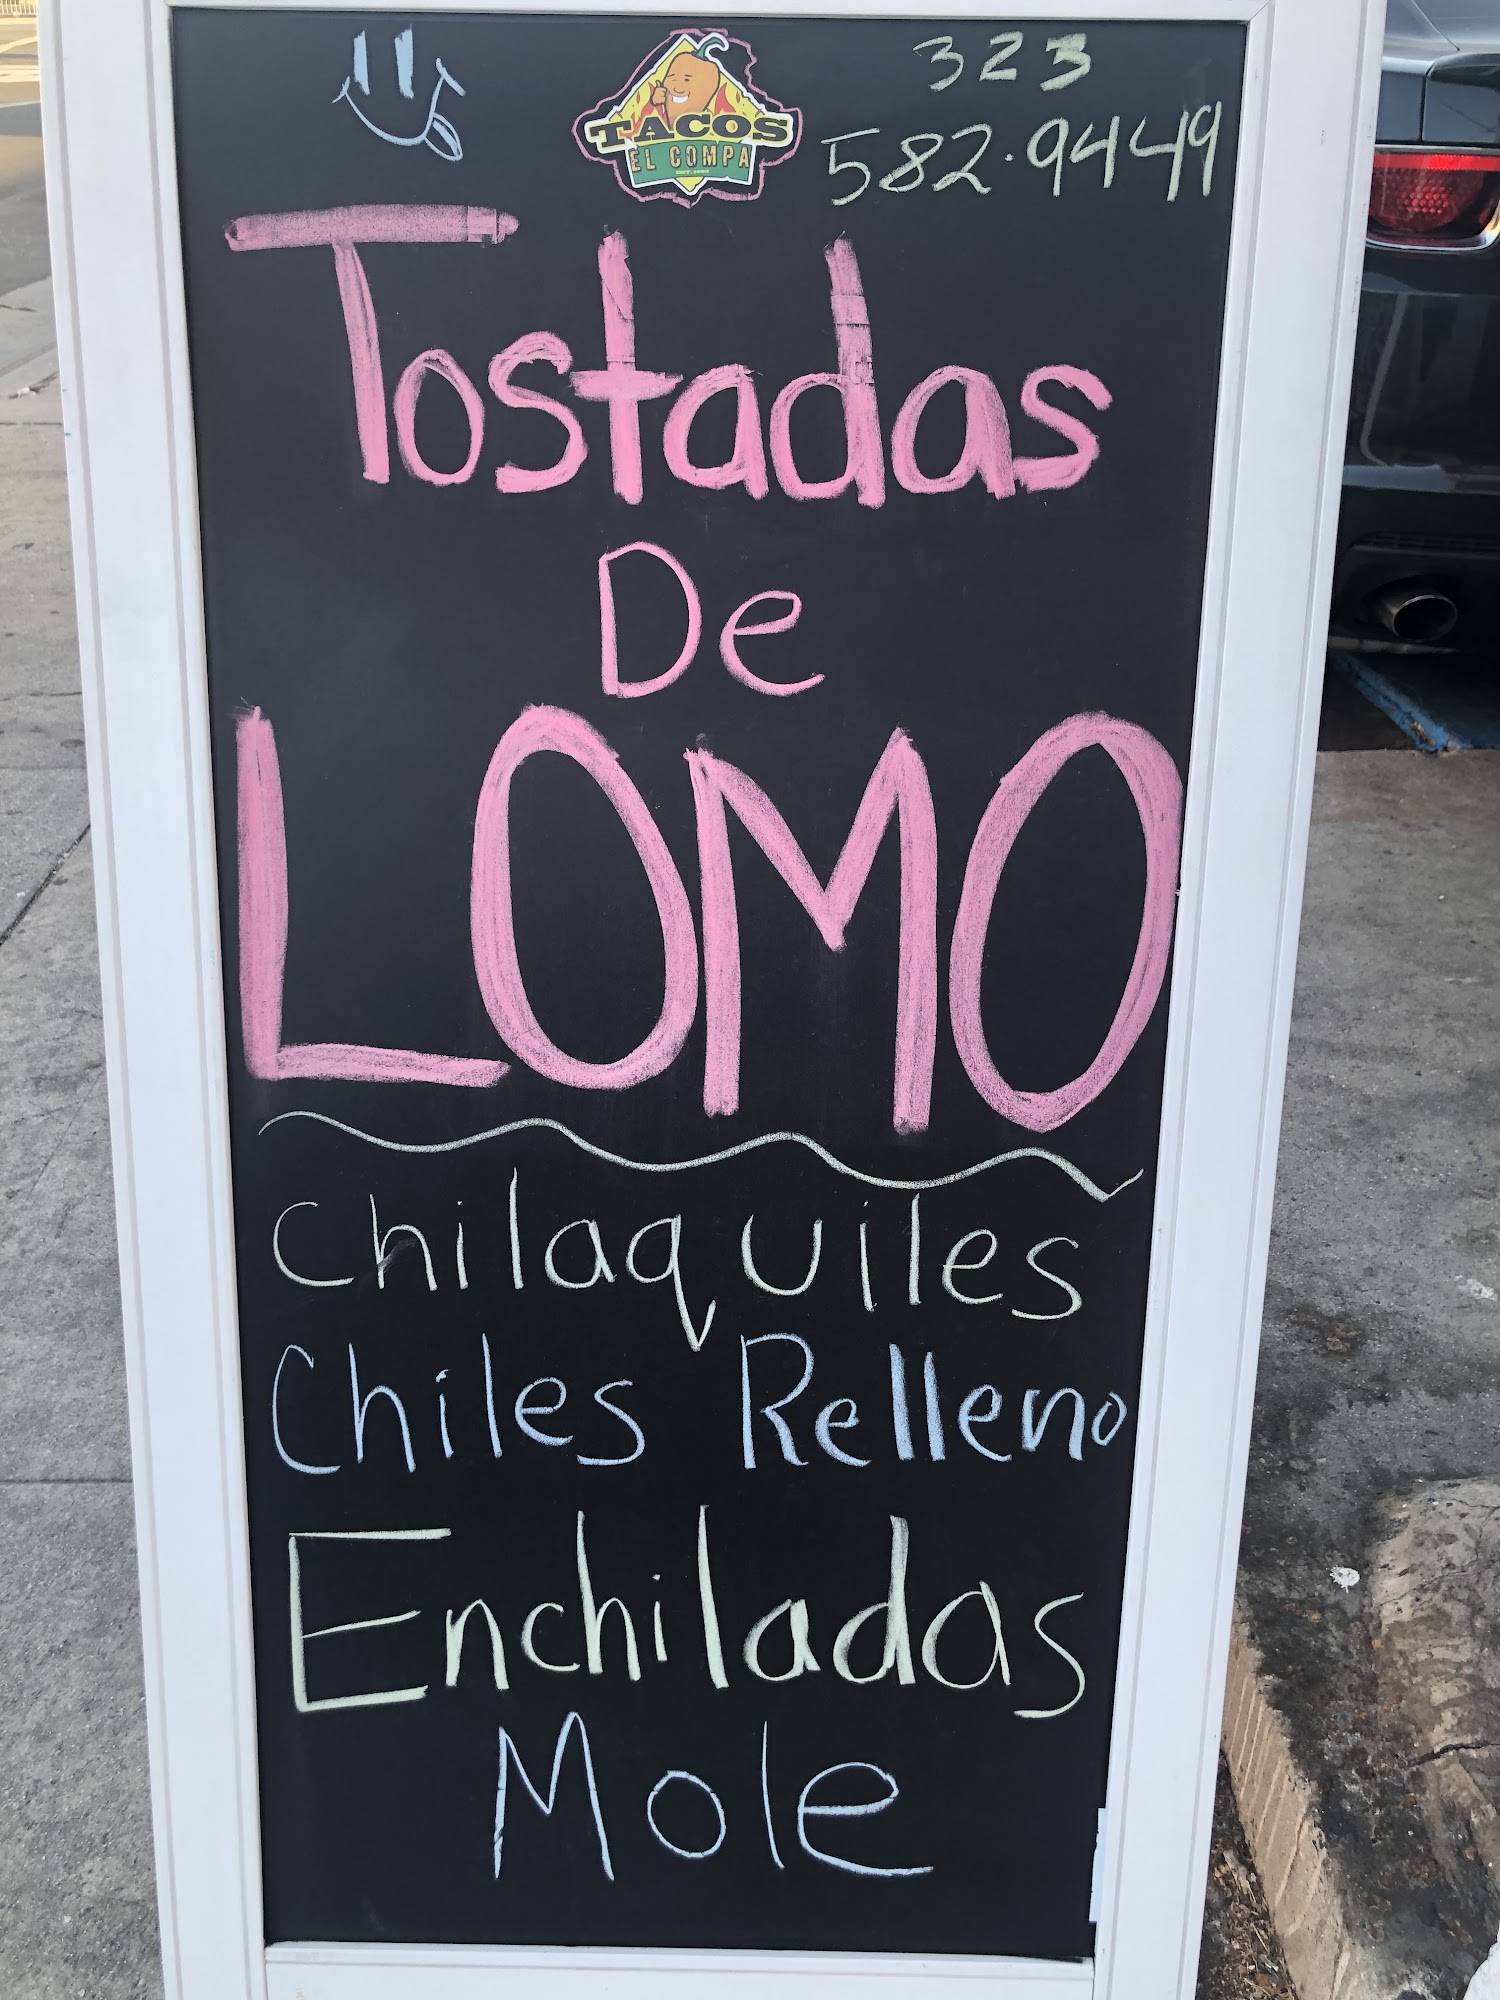 323
TACOS
EL COMPA
582.9449
Tostadas
De
LOMO
Chilaquiles
Chiles Relleno
Enchiladas
Mole